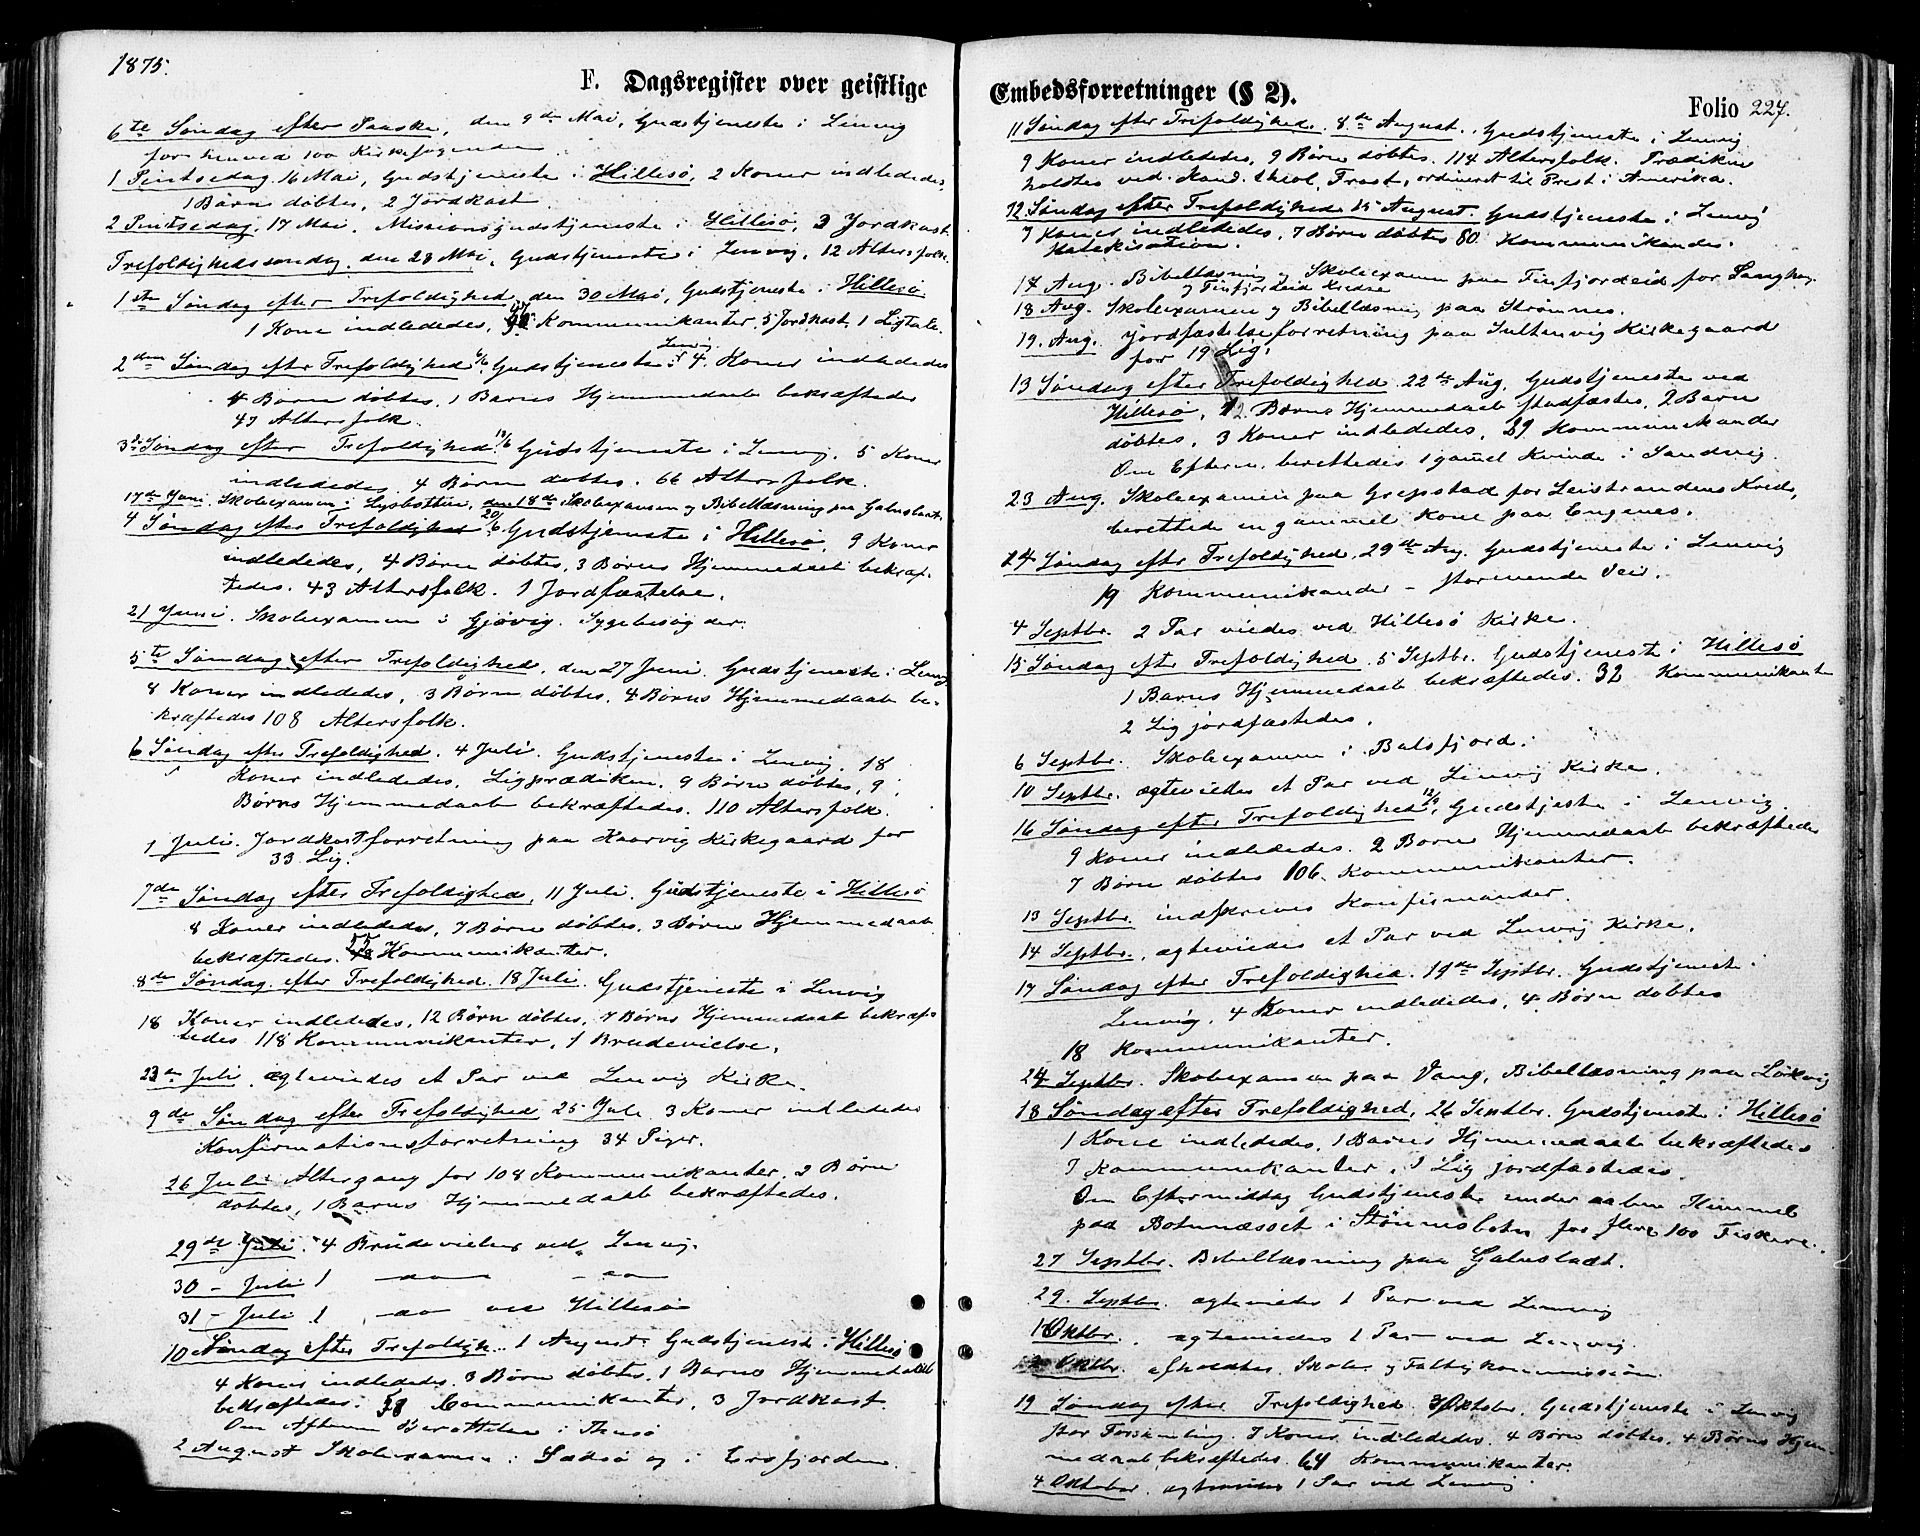 1875.
F. Dagsregister over geistlige
6te Søndag efter Paaske, den 9de Mai, Gudstjeneste i Lenvig
for henved 100 Kirkesøgende
1 Pintsedag 16 Mai, Gudstjeneste i Hillesø, 2 Koner indledede,
1 Børn døbtes, 2 Jordkast
2 Pintsedag, 17 Mai, Missionsgudstjeneste i Hillesø, 3 Jordkast
Trefoldighedssøndag, den 23 Mai, Gudstjeneste i Lenvig, 12 Altersfolk
1ste Søndag efter Trefoldighed, den 30 Mai, Gudstjeneste i Hillesø
1 Kone indledede, Kommunikanter, 5 Jordkast, 1 Ligtale.
2den Søndag efter Trefoldighed 6/6. Gudstjeneste i Lenvig 4. Koner indledede
4 Børn døbte, 1 Barns Hjemmedaab bekræftedes
43 Altersfolk.
3die Søndag efter Trefoldighed 13/6 Gudstjeneste i Lenvig, 5 Koner
indledede 4 Børn døbtes. 66 Altersfolk.
17de Juni. Skoleexamen i Lysbotten, den 18de Skoleexamen og Bibellæsning paa
4 Søndag efter Trefoldighed 20/6 Gudstjeneste i Hillesø, 9 Koner
indledede, 4 Børn døbtes, 3 Børns Hjemmedaab bekræf-
tedes. 43 Altersfolk. 1 Jordfæstelse.
21 Juni. Skoleexamen i Gjøvig. Sygebesøg der.
5te Søndag efter Trefoldighed, den 27 Juni Gudstjeneste i Lenvig
8 Koner indledede, 3 Børn døbtes, 4 Børns Hjemmedaab be-
kræftedes 108 Altersfolk.
6 Søndag efter Trefoldighed. 4 Juli. Gudstjeneste i Lenvig. 18
Koner indledede, Ligprædiken. 9 Børn døbtes, 9
Børns Hjemmedaab bekræftedes. 110 Altersfolk.
1 Juli. Jordkastforretning paa Kaarvig Kirkegaard for
33 Lig.
7de Søndag efter Trefoldighed, 11 Juli. Gudstjeneste i Hillesø
8 Koner indledede, 7 Børn døbtes, 3 Børns Hjemmedaab
bekræftedes. Kommunikanter.
8de Søndag efter Trefoldighed. 18 Juli. Gudstjeneste i Lenvig
18 Koner indledede, 12 Børn døbtes, 7 Børns Hjemmedaab bekræf-
tedes 118 Kommunikanter, 1 Brudevielse.
23de Juli ægteviedes et Par ved Lenvig Kirke.
9de Søndag efter Trefoldighed 25 Juli 3 Koner indledede
Konfirmationsforretning 34 Piger.
26 Juli Altergang for 108 Kommunikanter. 2 Børn
døbtes, 1 Barns Hjemmedaab bekræftedes.
29de Juli. 4 Brudevielser ved Lenvig.
30 - Juli 1 — do — do
31 - Juli 1 — do ved Hillesø
10 Søndag efter Trefoldigh. 1 August Gudstjeneste i Hillesø
4 Koner indledede, 3 Børn døbtes, 1 Barns Hjemmedaab
bekræftedes. Communikanter, 3 Jordkast
Om Aftenen Berettelse i
2 August Skoleexamen i og i Ersfjorden.
Embedsforretninger (§ 2).
Folio 227.
11 Søndag efter Trefoldighed. 8de August. Gudstjeneste i Lenvig
9 Koner indledede, 9 Børn døbtes. 114 Altersfolk. Prædiken
holdtes ved Kand. theol. Frost, ordineret til Prest i Amerika.
12 Søndag efter Trefoldighed 15 August. Gudstjeneste i Lenvig
7 Koner indledede, 7 Børn døbtes 80 Kommunikander.
Katekisation.
17 Aug. Bibellæsning og Skoleexamen paa Finfjordeid for
og Finfjordeid Kredse
18 Aug. Skoleexamen og Bibellæsning paa Strømnes.
19. Aug. Jordfæstelseforretning paa Sultenvig Kirkegaard
for 19 Lig.
13 Søndag efter Trefoldighed 22de Aug. Gudstjeneste ved
Hillesø, 2 Børns Hjemmedaab stadfæstes, 2 Børn
døbtes, 3 Koner indledede, 29 Kommunikander
Om Efterm. berettedes 1 gamel Kvinde i Sandvig.
23 Aug. Skoleexamen paa Grepstad for Leistrandens Kreds,
berettede en gammel Kone paa Engenes.
14 Søndag efter Trefoldighed, 29de Aug. Gudstjeneste i Lenvig
19 Kommunikander - stormende Veir.
4 Septbr. 2 Par viedes ved Hillesø Kirke.
15 Søndag efter Trefoldighed. 5 Septbr. Gudstjeneste i Hillesø
1 Barns Hjemmedaab bekræftedes. 32 Kommunikanter
2 Lig jordfæstedes.
6 Septbr. Skoleexamen i Balsfjord.
10 Septbr. ægteviedes et Par ved Lenvig Kirke.
16 Søndag efter Trefoldighed 12/9, Gudstjeste i Lenvig.
9 Koner indledede. 2 Børns Hjemmedaab bekræftedes
7 Børn døbtes 106 Kommunikanter.
13 Septbr. indskreves Konfirmander.
14 Septbr. ægteviedes et Par ved Lenvig Kirke.
17 Søndag efter Trefoldighed. 19de Septbr. Gudstjenest i
Lenvig. 4 Koner indledede, 4 Børn døbtes
18 Kommunikanter.
24 Septbr. Skoleexamen paa Vang, Bibellæsning paa
18 Søndag efter Trefoldighed, 26 Septbr. Gudstjenste i Hillesø
1 Kone indledede, 1 Barns Hjemmedaab bekræftedes
7 Kommunikanter. 1 Lig jordfæstedes
Om Eftermiddag Gudstjeneste under aaben Himmel
paa Botnnæsset i for flere 100 Fiskere.
27 Septbr. Bibellæsning paa
29. Septbr. ægtevies 1 Par ved Lenvig
1 Oktbr. ægteviedes 1 Par ved Lenvig.
2 Oktbr. afholdtes Skole- og Fattigkommission.
19 Søndag efter Trefoldighed 3 Oktober, Gudstjenste i Lenvig
Stor Forsamling. 7 Koner indledede. 4 Børn døbtes. 4 Børns Hjem-
medaab bekræftedes. 64 Kommunikanter.
4 Oktober ægtevies 1 Par ved Lenvig.